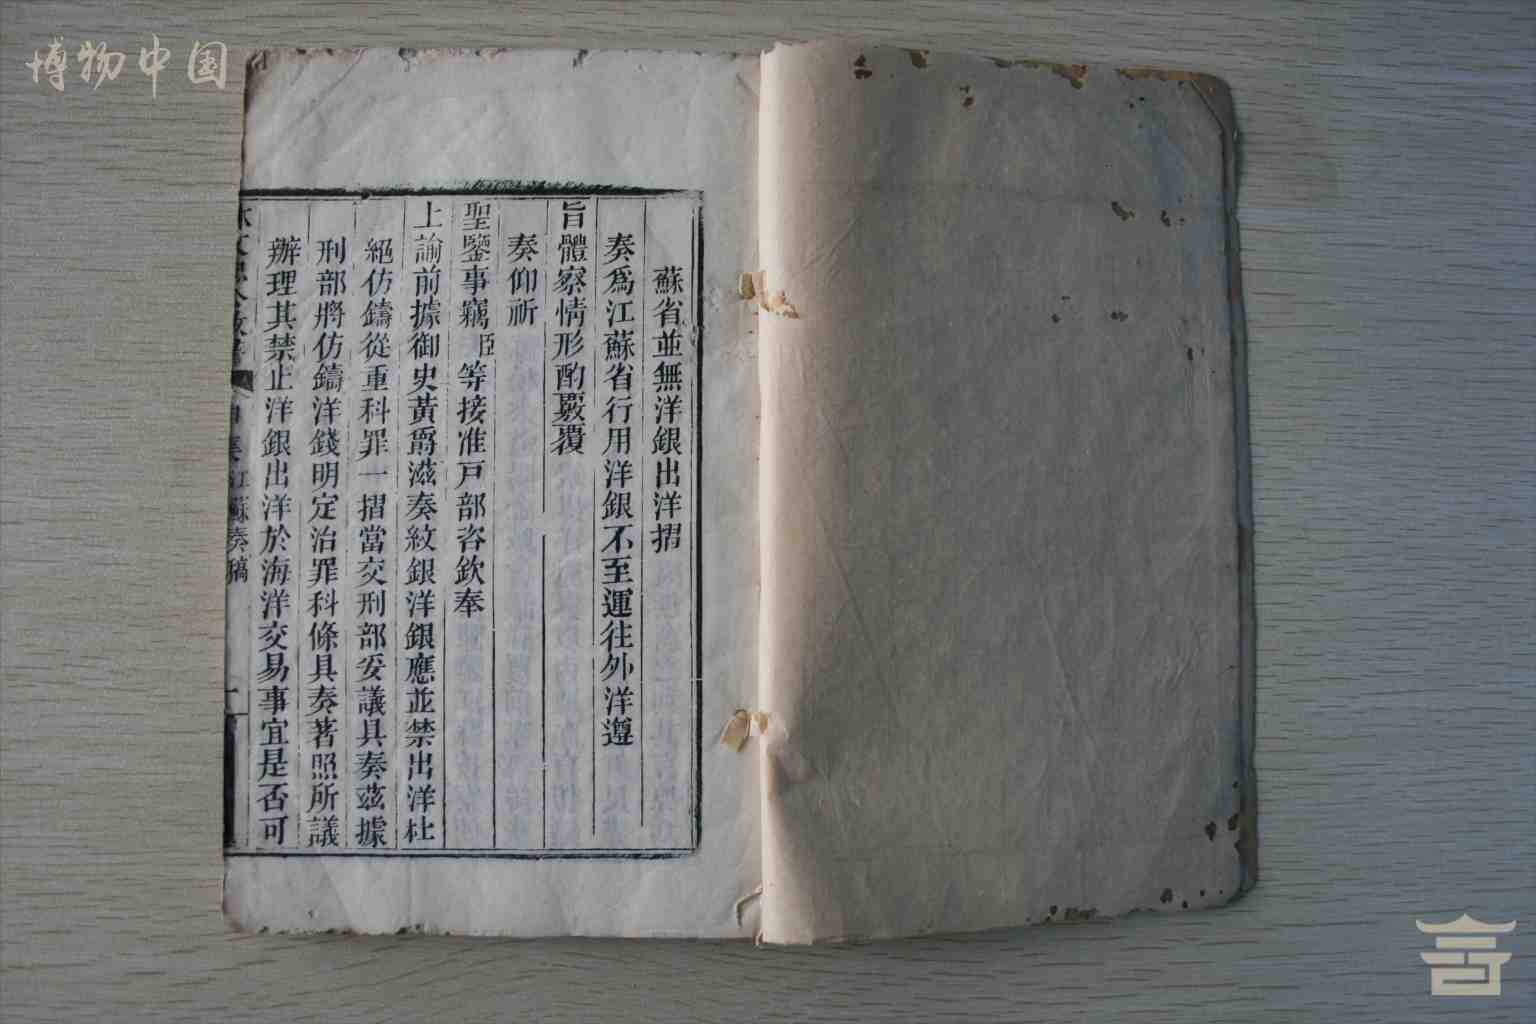 博物中国
蘇省並無洋銀出洋摺
奏爲江蘇省行用洋銀不至運往外洋遵
旨體察情形酌覈覆
奏仰祈
聖鑒事竊臣等接准戸部咨欽奉
上諭前據御史黃爵滋奏紋銀洋銀應並禁出洋杜
絕仿鑄從重科罪一摺當交刑部妥議具奏茲據
刑部將仿鑄洋錢明定治罪科條具奏著照所議
辦理其禁止洋銀出洋於海洋交易事宜是否可
蘇奏稿